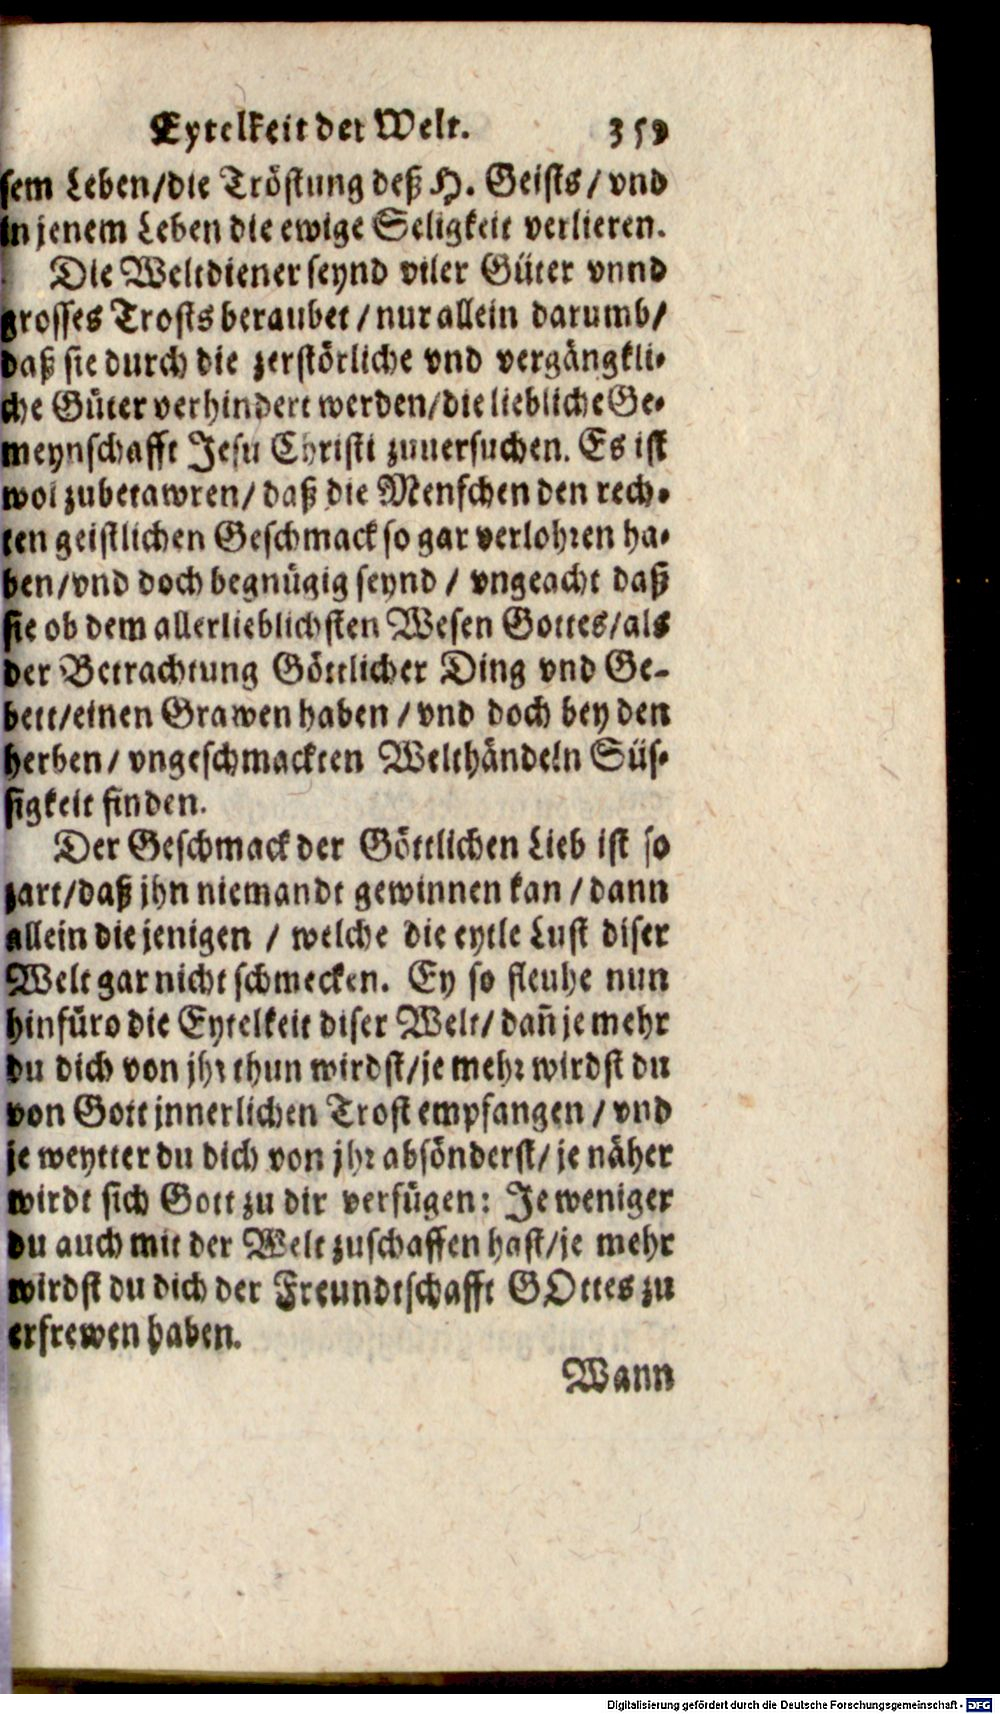 Eytelkeit der Welt. 359
sem Leben/die Tröstung deß H. Geists/vnd
in jenem Leben die ewige Seligkeit verlieren.
Die Weltdiener seynd viler Güter vnnd
grosses Trosts beraubet/nur allein darumb/
daß sie durch die zerstörliche vnd vergängkli-
che Güter verhindert werden/die liebliche Ge-
meynschafft Jesu Christi zuuersuchen. Es ist
wol zubetawren/daß die Menschen den rech-
ten geistlichen Geschmack so gar verlohren ha-
ben/vnd doch begnügig seynd/vngeacht daß
sie ob dem allerlieblichsten Wesen Gottes/als
der Betrachtung Göttlicher Ding vnd Ge-
bett/einen Grawen haben/vnd doch bey den
herben/vngeschmackten Welthändeln Süs-
sigkeit finden.
Der Geschmack der Göttlichen Lieb ist so
zart/daß jhn niemandt gewinnen kan/dann
allein die jenigen/welche die eytle Lust diser
Welt gar nicht schmecken. Ey so fleuhe nun
hinfüro die Eytelkeit diser Welt/dañ je mehr
du dich von jhr thun wirdst/je mehr wirdst du
von Gott jnnerlichen Trost empfangen/vnd
je weytter du dich von jhr absönderst/je näher
wirdt sich Gott zu dir verfügen: Je weniger
du auch mit der Welt zuschaffen hast/je mehr
wirdst du dich der Freundtschafft GOttes zu
erfrewen haben.
Wann
Digitalisierung gefördert durch die Deutsche Forschungsgemeinschaft - DFG